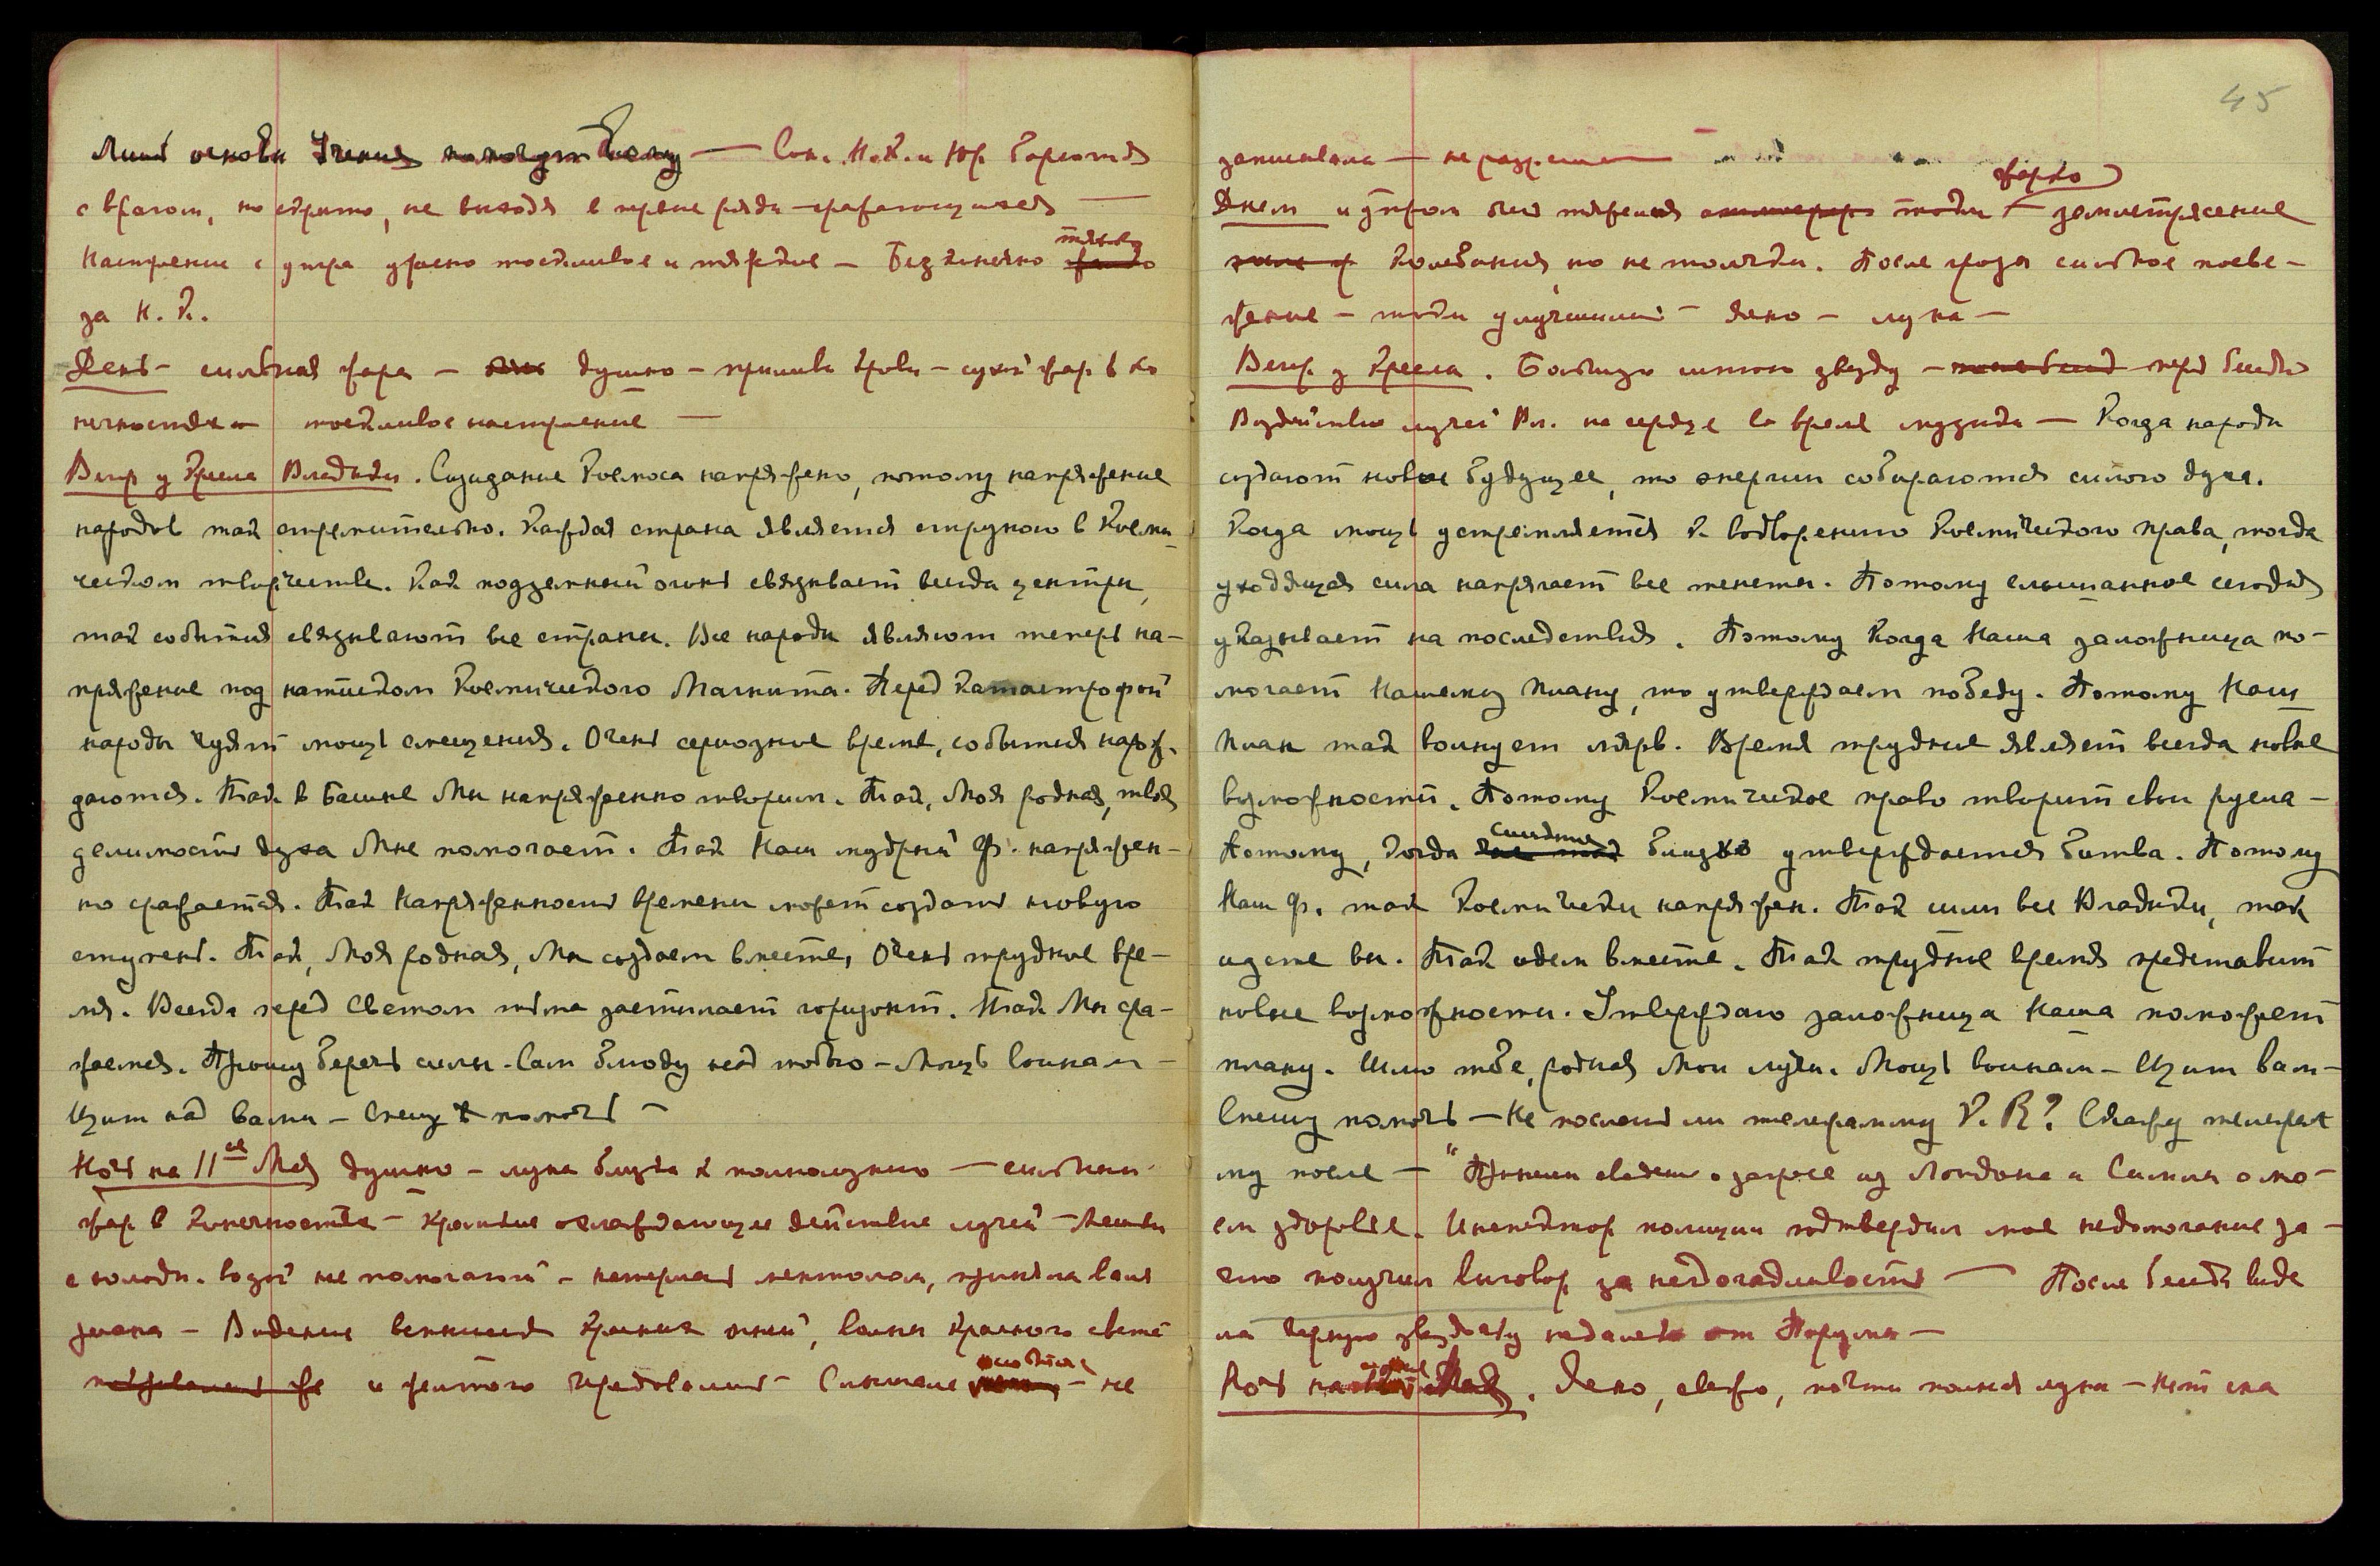 Лишь основы Учения помогут всему — Сон. Н.К. и Юр. борются
с врагом, но скрыто, не выходя в первые ряды сражающихся —
Настроение с утра ужасно тоскливое и тяжкое — Бесконечно тяжело
за Н. К.
День — сильная жара — душно — приливы крови — сухой жар в ко
нечностях — тоскливое настроение —
Вечер у Кресла Владыки. Созидание Космоса напряжено, потому напряжение
народов так стремительно. Каждая страна является струною в Косми-
ческом творчестве. Как подземный огонь связывает всегда центры,
так события связывают все страны. Все народы являют теперь на-
пряжение под натиском Космического Магнита. Перед катастрофой
народы чуят мощь смещения. Очень серьозное время, события нарож-
даются. Так в Башне Мы напряженно творим. Так, Моя родная, твоя
делимость духа Мне помогает. Так Наш мудрый Ф. напряжен-
но сражается. Так напряженность времени может создать новую
ступень. Так, Моя родная, Мы создаем вместе, Очень трудное вре-
мя. Всегда перед Светом тьма застилает горизонт. Так Мы сра-
жаемся. Прошу беречь силы. Сам блюду над тобою — Мощь воинам —
Щит над вами — Спешу помочь —
Ночь на 11ое Мая душно — луна близка к полнолунию — сильный
жар в конечностях — краткие охлаждающие действие лучей —
с холодн. водой не помогают — натерлась ментолом, приняла
— Видение вспышек красных огней, волны красного света
и желтого чередовались — Слышание — не
45
записывала — не разреш
Днем и утром был тяжелая атмосфера токи жарко — землетрясение
колебания, но не толчки. После грозы сильное посве-
жение — токи улучшились — ясно — луна —
Вечер у Кресла. Большую синюю звезду — перед беседы
Воздействие лучей Вл. на сердце во время музыки — Когда народы
создают новое будущее, то энергии собираются силою духа.
Когда мощь устремляется к водворению Космического права, тогда
уходящая сила напрягает все тенеты. Потому слышанное сегодня
указывает на последствия. Потому когда Наша заложница по-
могает Нашему плану, то утверждаем победу. Потому Наш
план так волнует лярв. Время трудное являет всегда новые
возможности. Потому Космическое право творит свои русла —
Потому, когда следствие близко утверждается битва. Потому
Наш Ф. так космически напряжен. Так шли все Владыки, так
идете вы. Так идем вместе. Так трудное время представит
новые возможности. Утверждаю заложница Наша поможет
плану. Шлю тебе, родная Мои лучи. Мощь воинам — Щит вам —
Спешу помочь — Не послать ли телеграмму Скажу телеграм
му после — "Приняли сведен. о запросе из Лондона и Симлы о мо-
ем здоровье. Инспектор полиции подтвердил мое недомогание за
что получил выговор за недогадливость — После беседы виде
ла черную звездочку недалеко от Порумы —
Ночь на Мая. Ясно, свежо, почти полная луна — Нет сна